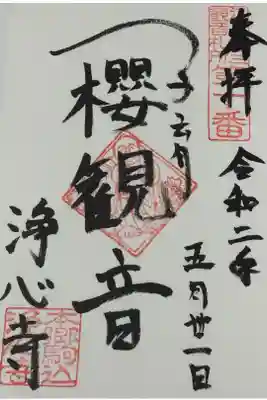 奉拝
令和二年
五月廿一日
子育
櫻観音
浄心寺
本郷駒込